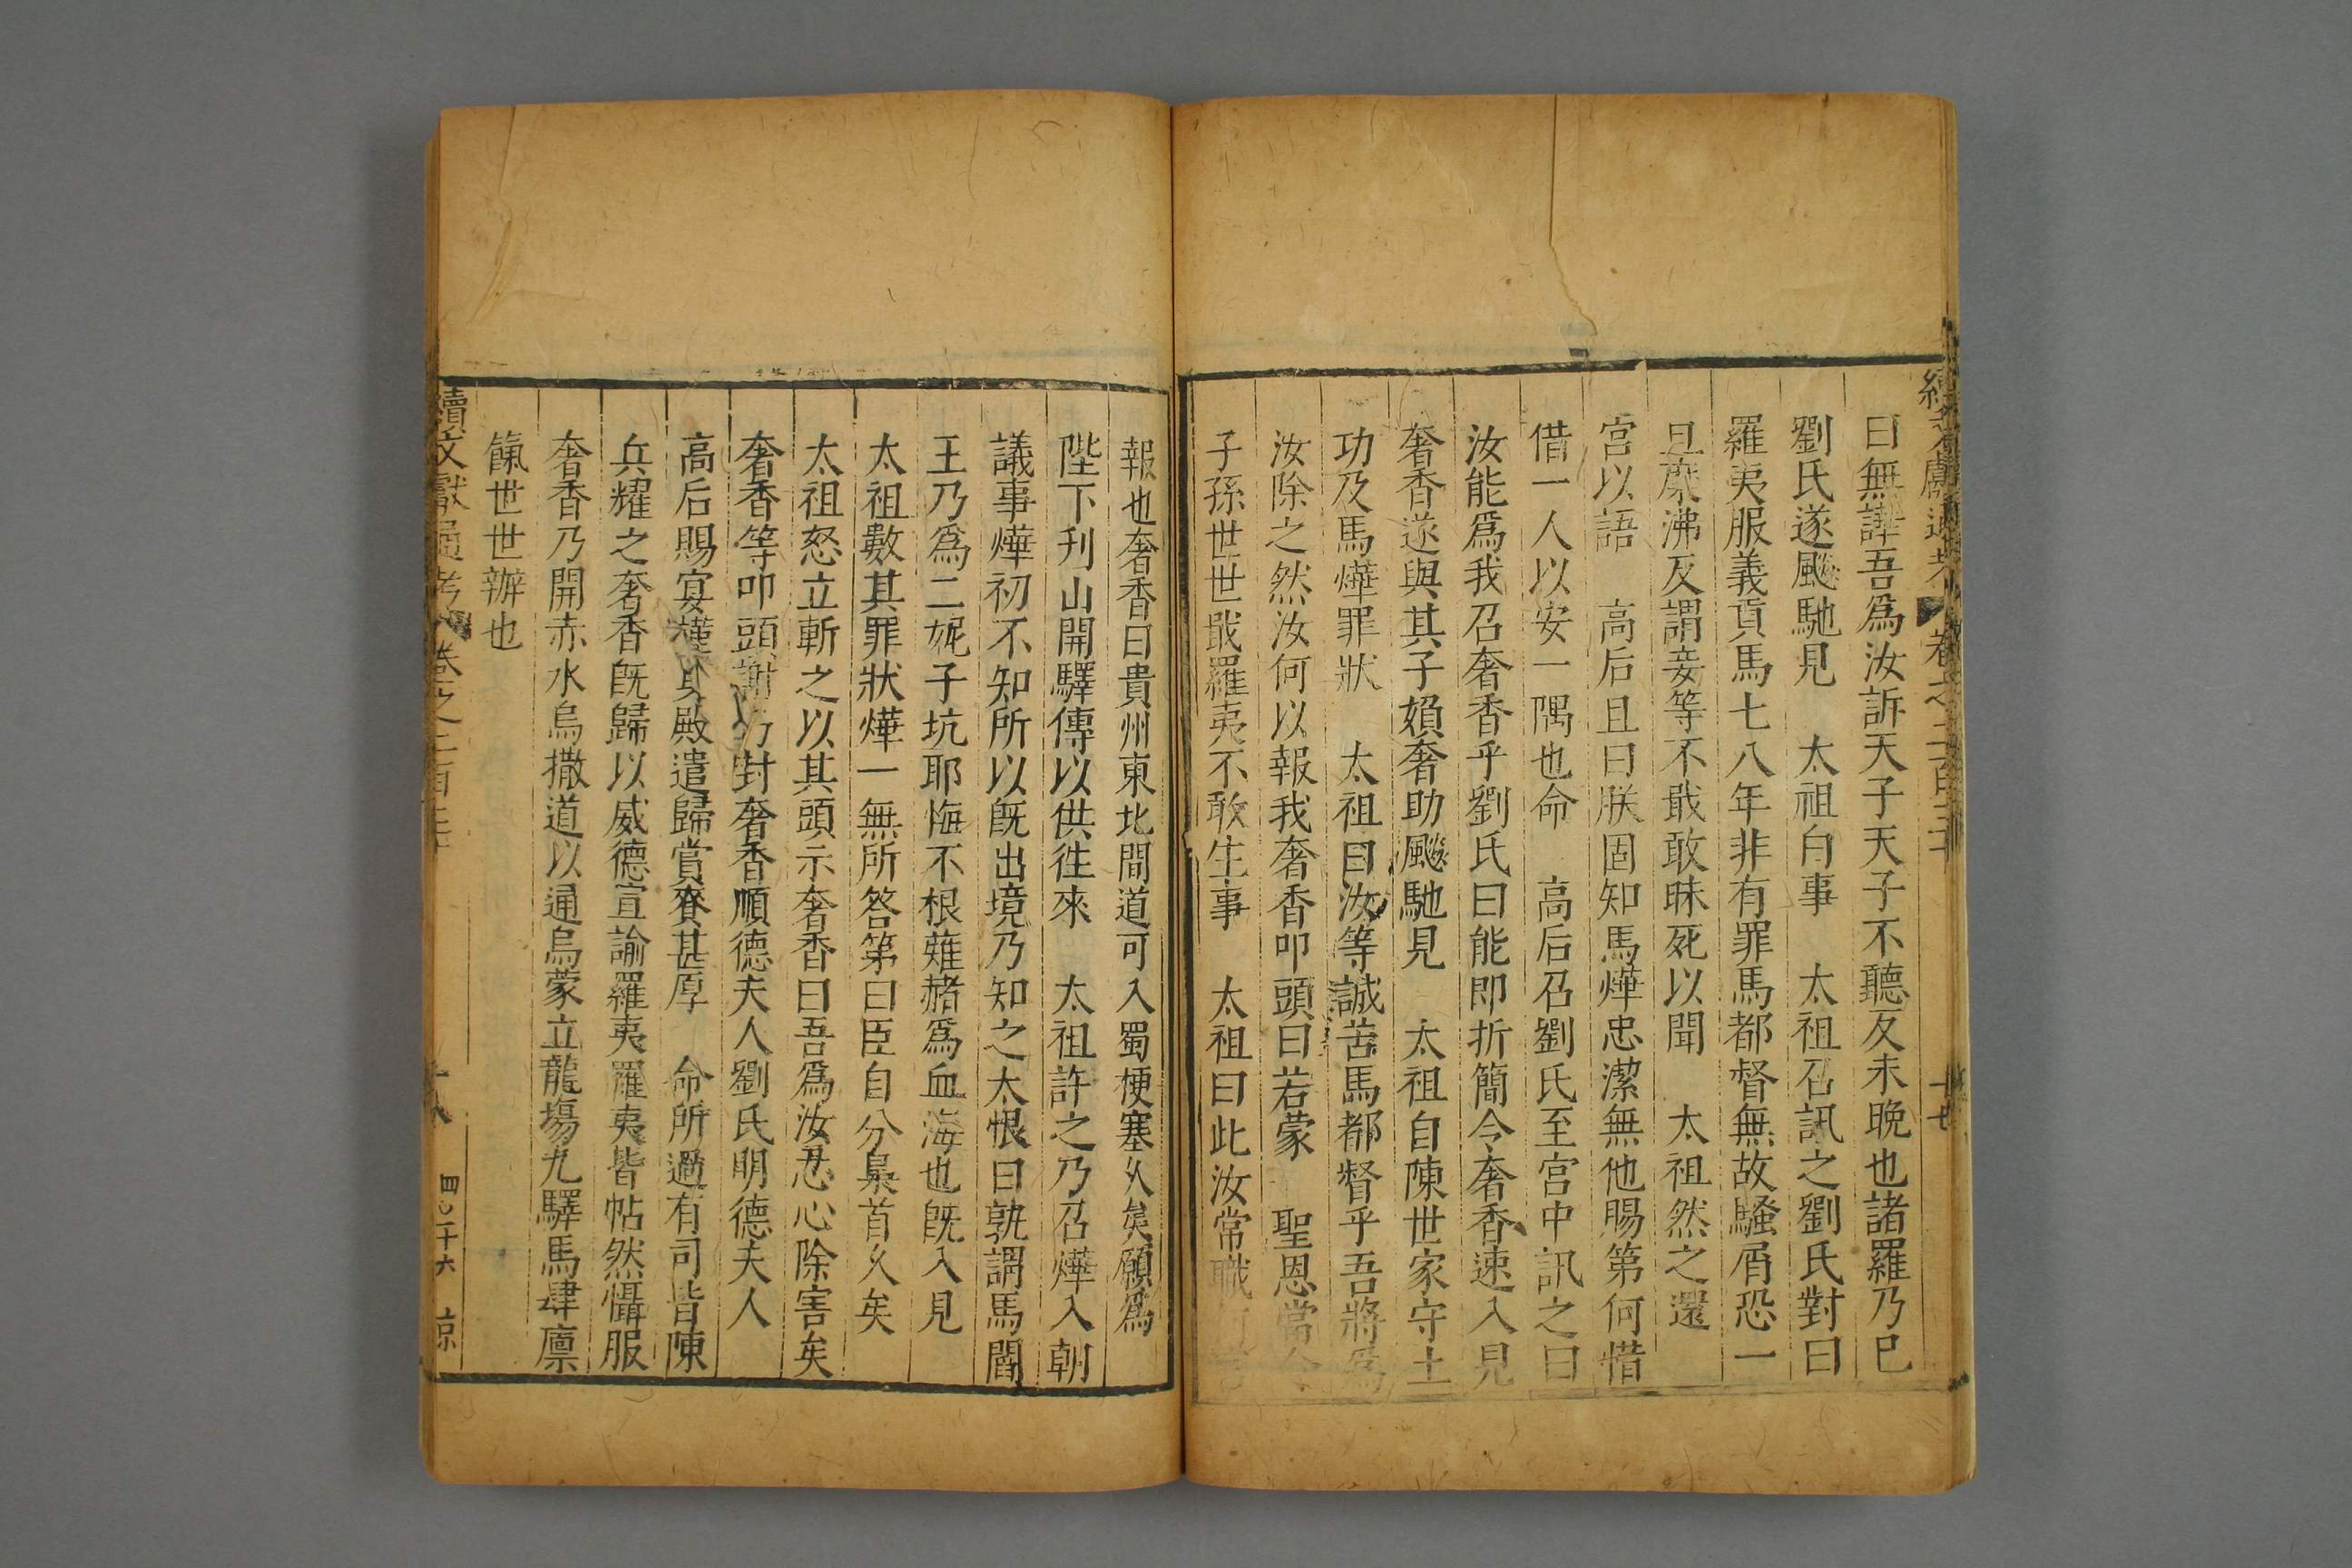 曰無譁吾爲汝訴天子天子不聽反未晩也諸羅乃已
劉氏遂颷馳見　太祖白事　太祖召訊之劉氏對曰
羅夷服義貢馬七八年非有罪馬都督無故騷屑恐一
旦糜沸反謂妾等不戢敢昧死以聞　太祖然之還
宮以語　高后且曰朕固知馬燁忠潔無他賜第何惜
借一人以安一隅也命　高后召劉氏至宮中訊之曰
汝能爲我召奢香乎劉氏曰能即折簡令奢香速入見
奢香遂與其子媍奢助颷馳見　太祖自陳世家守土
功及馬燁罪狀　太祖曰汝等誠苦馬都督乎吾將爲
汝除之然汝何以報我奢香叩頭曰若蒙　聖恩當令
子孫世世戢羅夷不敢生事　太祖曰此汝常職
報也奢香曰貴州東北間道可入蜀梗塞久矣願爲
陛下刋山開驛傳以供徃來　太祖許之乃召燁入朝
議事燁初不知所以旣出境乃知之太恨曰孰謂馬閻
王乃爲二妮子坑耶悔不根薙赭爲血海也旣入見
太祖數其罪狀燁一無所答第曰臣自分梟首久矣
太祖怒立斬之以其頭示奢香曰吾爲汝忍心除害矣
奢香等叩頭謝乃封奢香順德夫人劉氏明德夫人
高后賜宴殿遣歸賞賚甚厚　命所過有司皆陳
兵耀之奢香旣歸以威德宣諭羅夷羅夷皆帖然懾服
奢香乃開赤水烏撒道以通烏蒙立龍塲九驛馬肆廪
餼世世辦也
續文獻通考　卷之二百三十　十八　四〇千六　京